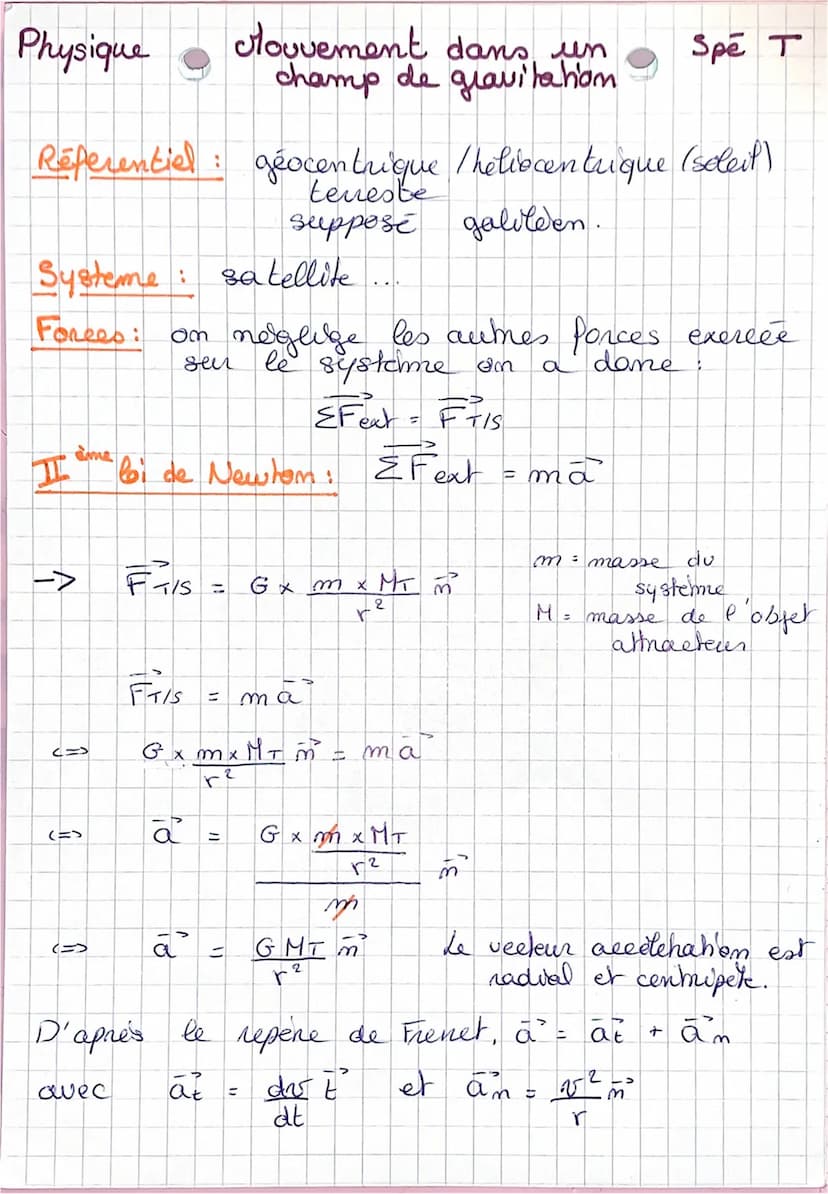 Physique Mouvement dans un Spé T
champ de gravitation
Réferentiel : géocentrique / héliocentrique (soleil)
terreste
supposé galiléen.
Systeme : satellite ...
Forces : on néglige les autres forces exercée
sur le système on a donc :
ΣF⃗ext = F⃗T/S
IIème loi de Newton : ΣF⃗ext = ma⃗
-> F⃗T/S = G x (m x MT)/r² n⃗
m = masse du
système
M = masse de l'objet
attracteur
F⃗T/S = ma⃗
<=> G x (m x MT)/r² n⃗ = ma⃗
<=> a⃗ = (G x (m x MT)/r²)/m n⃗
<=> a⃗ = GMT/r² n⃗ Le vecteur accélération est
radial et centripète.
D'après le repère de Frenet, a⃗ = a⃗t + a⃗n
avec a⃗t = dv/dt t⃗ et a⃗n = v²/r n⃗